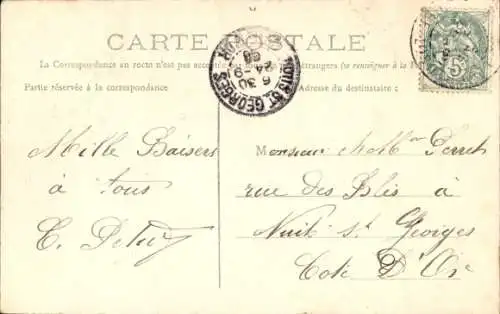 CARTE POSTALE
La Correspondance au recto n'est pas étrangers (se renseigner à la
Partie réservée à la correspondance
Adresse du destinataire :
NUITS ST GEORGES
6 30
24-9
08
5
Mille Baisers
à tous
Monsieur & Mme Perret
rue des Isles à
Nuit St Georges
Cote D'Or